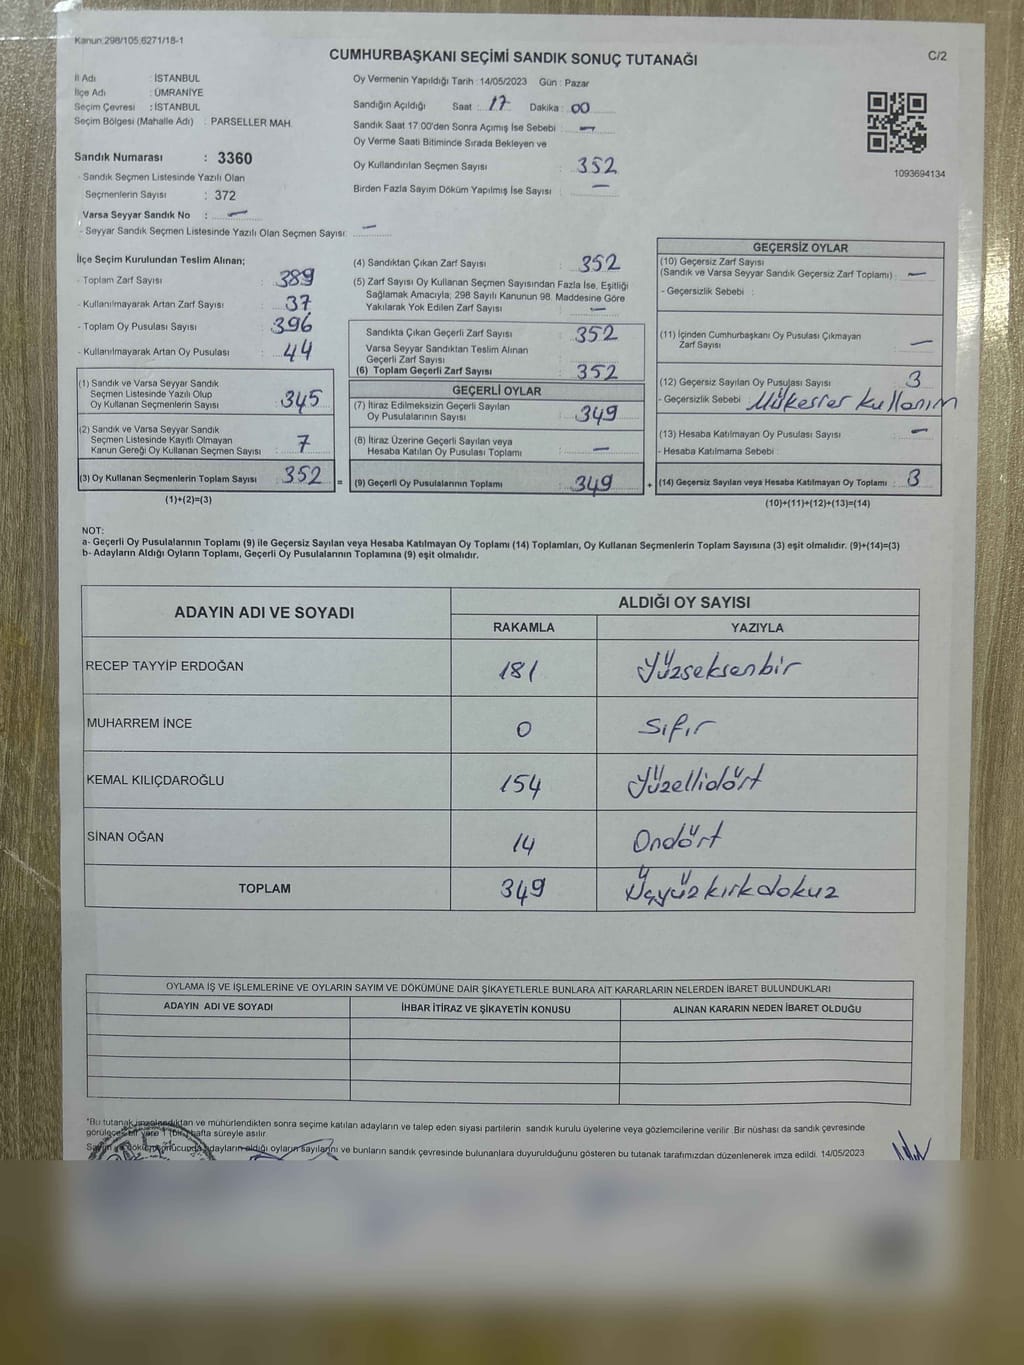 Kanun:298/105,6271/18-1
CUMHURBAŞKANI SEÇİMİ SANDIK SONUÇ TUTANAĞI
C/2
İl Adı : İSTANBUL
İlçe Adı : ÜMRANİYE
Seçim Çevresi : İSTANBUL
Seçim Bölgesi (Mahalle Adı) : PARSELLER MAH.
Sandık Numarası : 3360
- Sandık Seçmen Listesinde Yazılı Olan
Seçmenlerin Sayısı : 372
Varsa Seyyar Sandık No : —
- Seyyar Sandık Seçmen Listesinde Yazılı Olan Seçmen Sayısı: —
Oy Vermenin Yapıldığı Tarih : 14/05/2023 Gün : Pazar
Sandığın Açıldığı Saat : 17 Dakika : 00
Sandık Saat 17:00'den Sonra Açımış İse Sebebi : —
Oy Verme Saati Bitiminde Sırada Bekleyen ve
Oy Kullandırılan Seçmen Sayısı : 352
Birden Fazla Sayım Döküm Yapılmış İse Sayısı : —
1093694134
İlçe Seçim Kurulundan Teslim Alınan;
- Toplam Zarf Sayısı : 389
- Kullanılmayarak Artan Zarf Sayısı : 37
- Toplam Oy Pusulası Sayısı : 396
- Kullanılmayarak Artan Oy Pusulası : 44
(1) Sandık ve Varsa Seyyar Sandık
Seçmen Listesinde Yazılı Olup
Oy Kullanan Seçmenlerin Sayısı : 345
(2) Sandık ve Varsa Seyyar Sandık
Seçmen Listesinde Kayıtlı Olmayan
Kanun Gereği Oy Kullanan Seçmen Sayısı : 7
(3) Oy Kullanan Seçmenlerin Toplam Sayısı : 352 =
(1)+(2)=(3)
(4) Sandıktan Çıkan Zarf Sayısı : 352
(5) Zarf Sayısı Oy Kullanan Seçmen Sayısından Fazla İse, Eşitliği
Sağlamak Amacıyla; 298 Sayılı Kanunun 98. Maddesine Göre
Yakılarak Yok Edilen Zarf Sayısı : —
Sandıkta Çıkan Geçerli Zarf Sayısı : 352
Varsa Seyyar Sandıktan Teslim Alınan
Geçerli Zarf Sayısı :
(6) Toplam Geçerli Zarf Sayısı : 352
GEÇERLİ OYLAR
(7) İtiraz Edilmeksizin Geçerli Sayılan
Oy Pusulalarının Sayısı : 349
(8) İtiraz Üzerine Geçerli Sayılan veya
Hesaba Katılan Oy Pusulası Toplamı : —
(9) Geçerli Oy Pusulalarının Toplamı : 349 +
GEÇERSİZ OYLAR
(10) Geçersiz Zarf Sayısı
(Sandık ve Varsa Seyyar Sandık Geçersiz Zarf Toplamı) : —
- Geçersizlik Sebebi :
(11) İçinden Cumhurbaşkanı Oy Pusulası Çıkmayan
Zarf Sayısı : —
(12) Geçersiz Sayılan Oy Pusulası Sayısı : 3
- Geçersizlik Sebebi : Mükerrer kullanım
(13) Hesaba Katılmayan Oy Pusulası Sayısı : —
- Hesaba Katılmama Sebebi :
(14) Geçersiz Sayılan veya Hesaba Katılmayan Oy Toplamı : 3
(10)+(11)+(12)+(13)=(14)
NOT:
a- Geçerli Oy Pusulalarının Toplamı (9) ile Geçersiz Sayılan veya Hesaba Katılmayan Oy Toplamı (14) Toplamları, Oy Kullanan Seçmenlerin Toplam Sayısına (3) eşit olmalıdır. (9)+(14)=(3)
b- Adayların Aldığı Oyların Toplamı, Geçerli Oy Pusulalarının Toplamına (9) eşit olmalıdır.
ADAYIN ADI VE SOYADI
ALDIĞI OY SAYISI
RAKAMLA YAZIYLA
RECEP TAYYİP ERDOĞAN 181 Yüzseksenbir
MUHARREM İNCE 0 Sıfır
KEMAL KILIÇDAROĞLU 154 Yüzellidört
SİNAN OĞAN 14 Ondört
TOPLAM 349 Üçyüzkırkdokuz
OYLAMA İŞ VE İŞLEMLERİNE VE OYLARIN SAYIM VE DÖKÜMÜNE DAİR ŞİKAYETLERLE BUNLARA AİT KARARLARIN NELERDEN İBARET BULUNDUKLARI
ADAYIN ADI VE SOYADI İHBAR İTİRAZ VE ŞİKAYETİN KONUSU ALINAN KARARIN NEDEN İBARET OLDUĞU
*Bu tutanak imzalandıktan ve mühürlendikten sonra seçime katılan adayların ve talep eden siyasi partilerin sandık kurulu üyelerine veya gözlemcilerine verilir. Bir nüshası da sandık çevresinde
görülecek bir yere 1 (bir) hafta süreyle asılır.
Sayım ve döküm sonucunda adayların aldığı oyların sayılarını ve bunların sandık çevresinde bulunanlara duyurulduğunu gösteren bu tutanak tarafımızdan düzenlenerek imza edildi. 14/05/2023